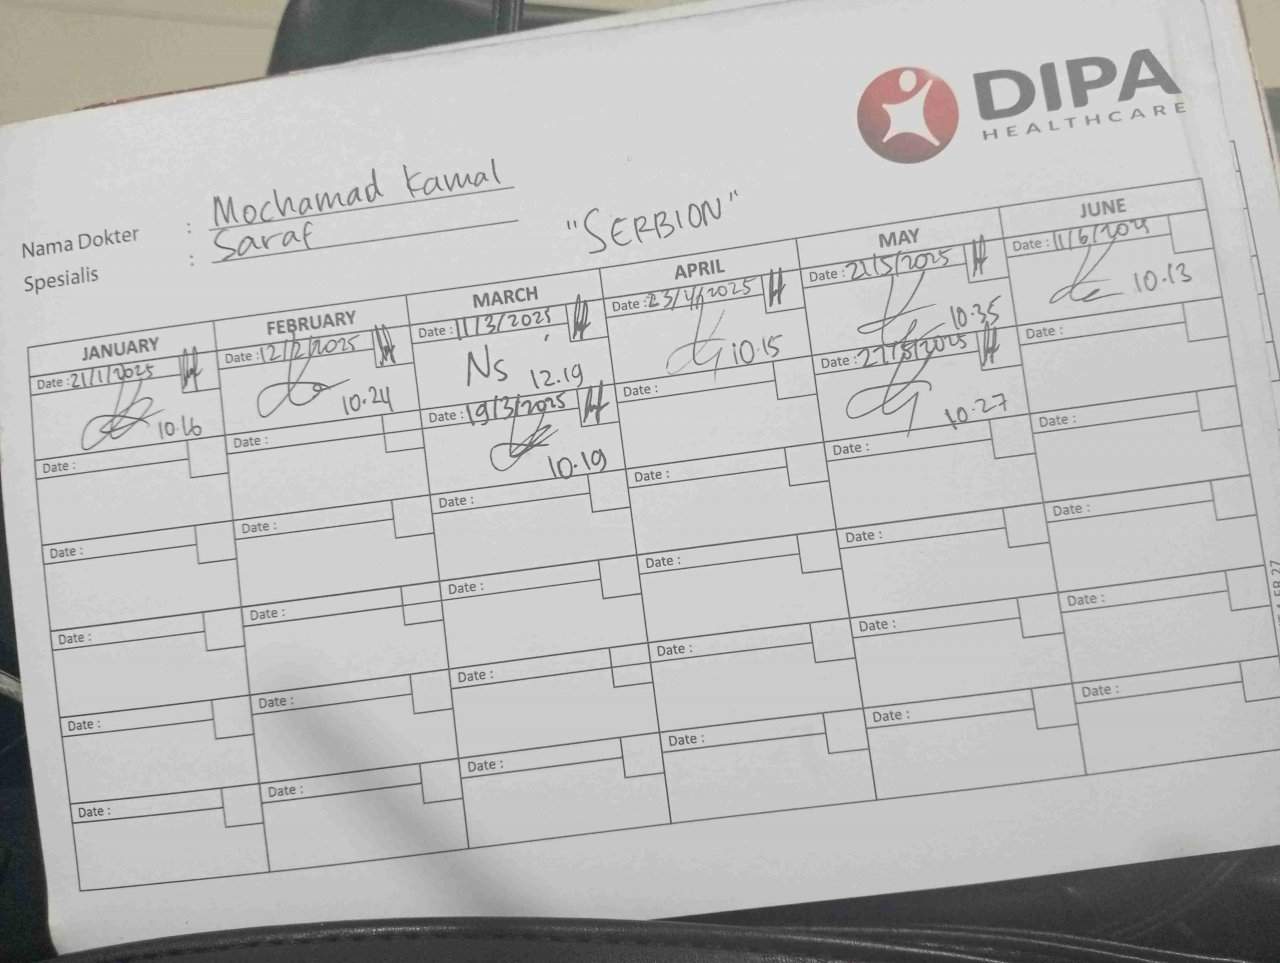 DIPA
HEALTHCARE
Nama Dokter : Mochamad Kamal
Spesialis : Saraf
"SERBION"
JANUARY
Date : 21/1/2025
10.16
Date :
Date :
Date :
Date :
Date :
FEBRUARY
Date : 12/2/2025
10.24
Date :
Date :
Date :
Date :
Date :
MARCH
Date : 11/3/2025
Ns 12.19
Date : 19/3/2025
10.19
Date :
Date :
Date :
Date :
APRIL
Date : 23/4/2025
10.15
Date :
Date :
Date :
Date :
Date :
MAY
Date : 22/5/2025
10.35
Date : 27/5/2025
10.27
Date :
Date :
Date :
Date :
JUNE
Date : 11/6/2025
10.13
Date :
Date :
Date :
Date :
Date :